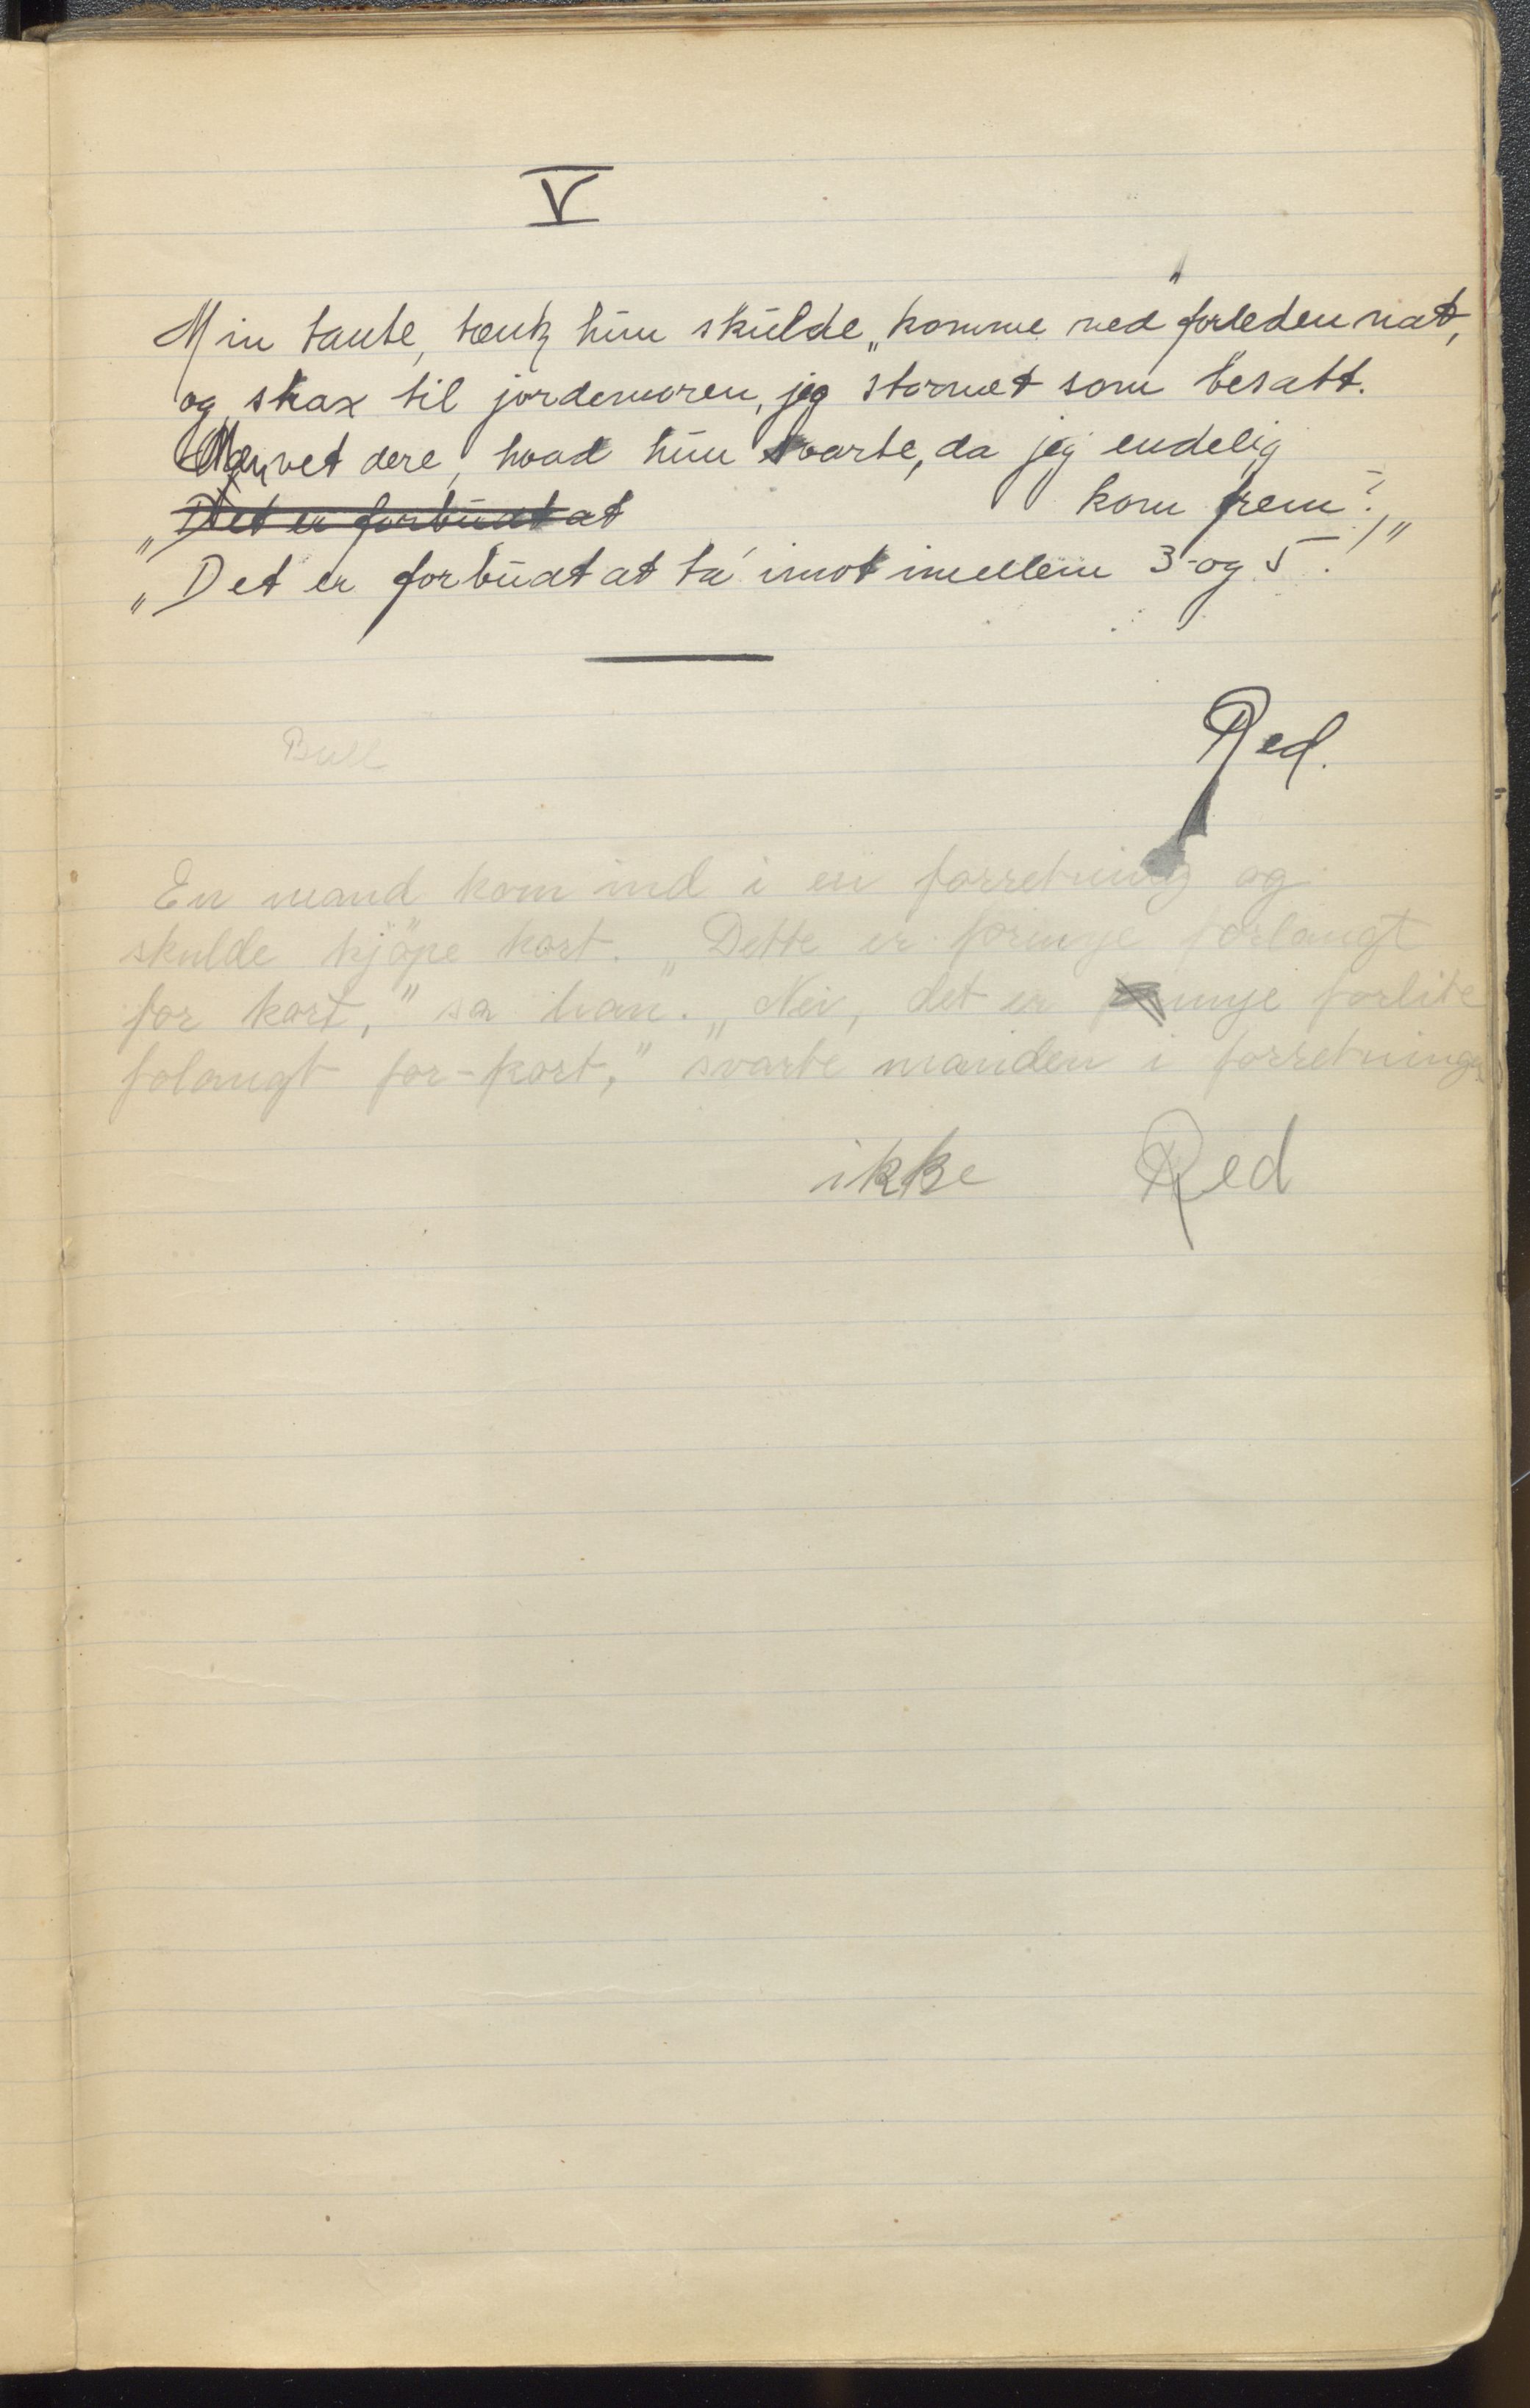 V
Min tante, tænk hun skulde „komme ned” forleden nat,
og strax til jordemoren, jeg stormet som besatt.
Men vet dere, hvad hun svarte, da jeg endelig
kom frem?
„Det er forbudt at
„Det er forbudt at ta imot imellem 3 og 5!”
Red.
Bull
En mand kom ind i en forretning og
skulde kjöpe kort. „Dette er formye forlangt
for kort,” sa han. „Nei, det er mye forlite
folangt for-kort,” svarte manden i forretningen
ikke Red